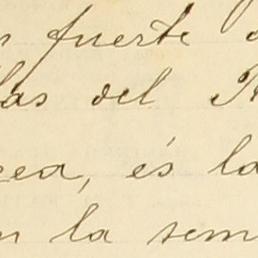 fuerte
las del
cea, és la
la sem